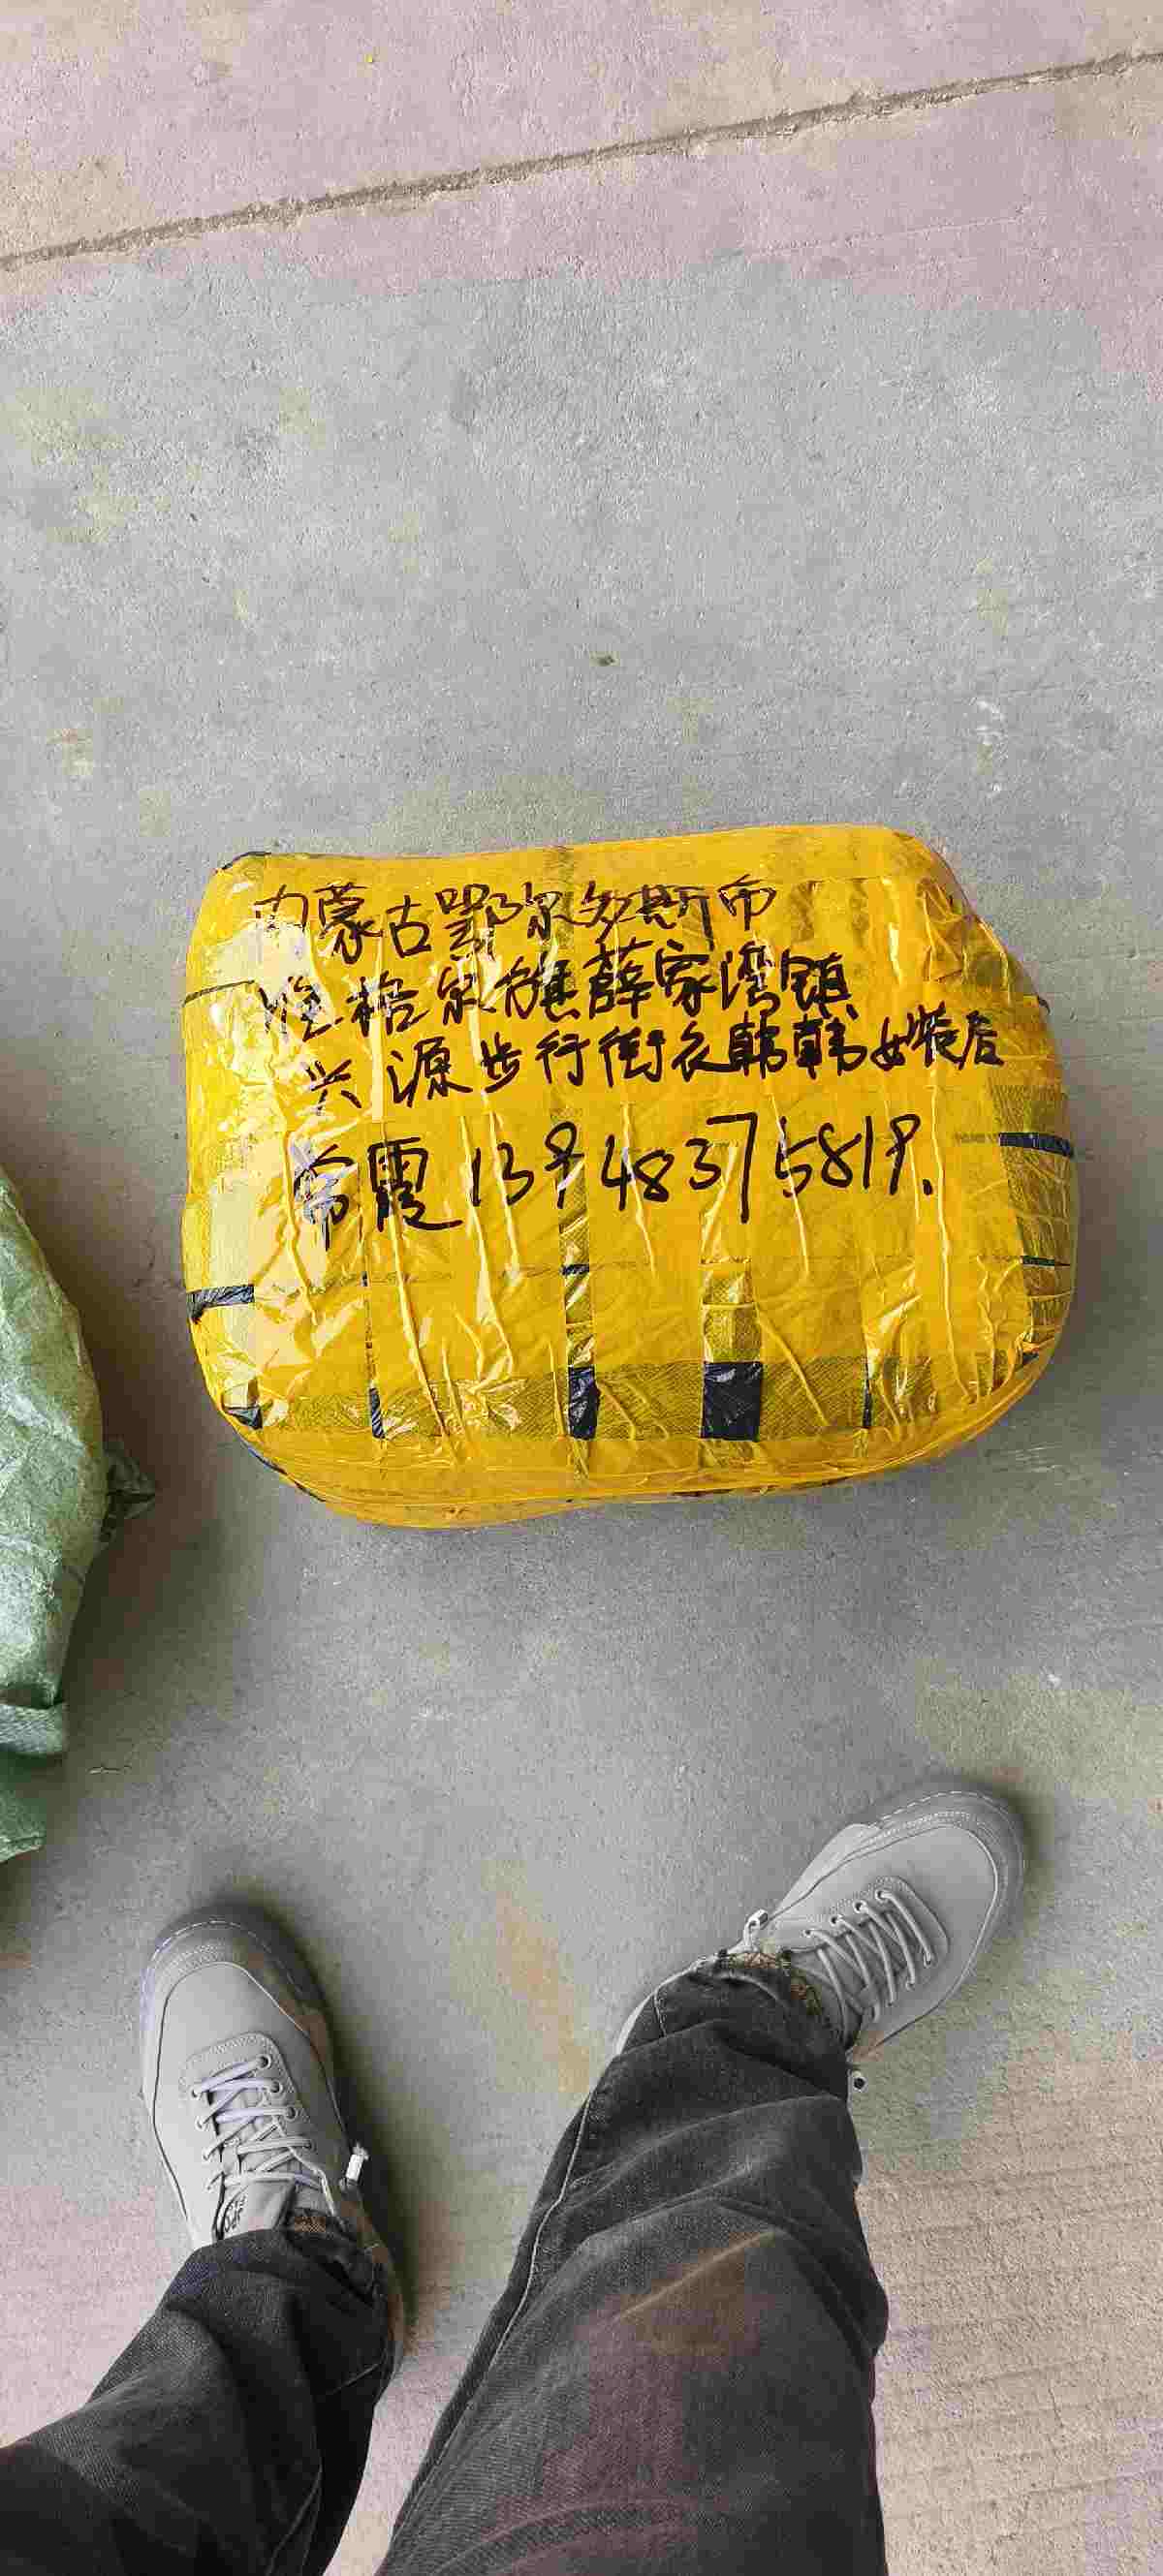 内蒙古鄂尔多斯市
准格尔旗薛家湾镇
兴源步行街衣韩韩女装店
常霞 13948375819.